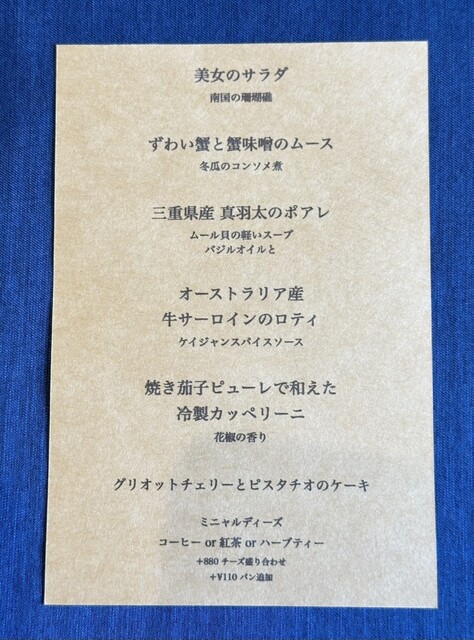 美女のサラダ
南国の珊瑚礁
ずわい蟹と蟹味噌のムース
冬瓜のコンソメ煮
三重県産 真羽太のポアレ
ムール貝の軽いスープ
バジルオイルと
オーストラリア産
牛サーロインのロティ
ケイジャンスパイスソース
焼き茄子ピューレで和えた
冷製カッペリーニ
花椒の香り
グリオットチェリーとピスタチオのケーキ
ミニャルディーズ
コーヒー or 紅茶 or ハーブティー
+880 チーズ盛り合わせ
+¥110 パン追加